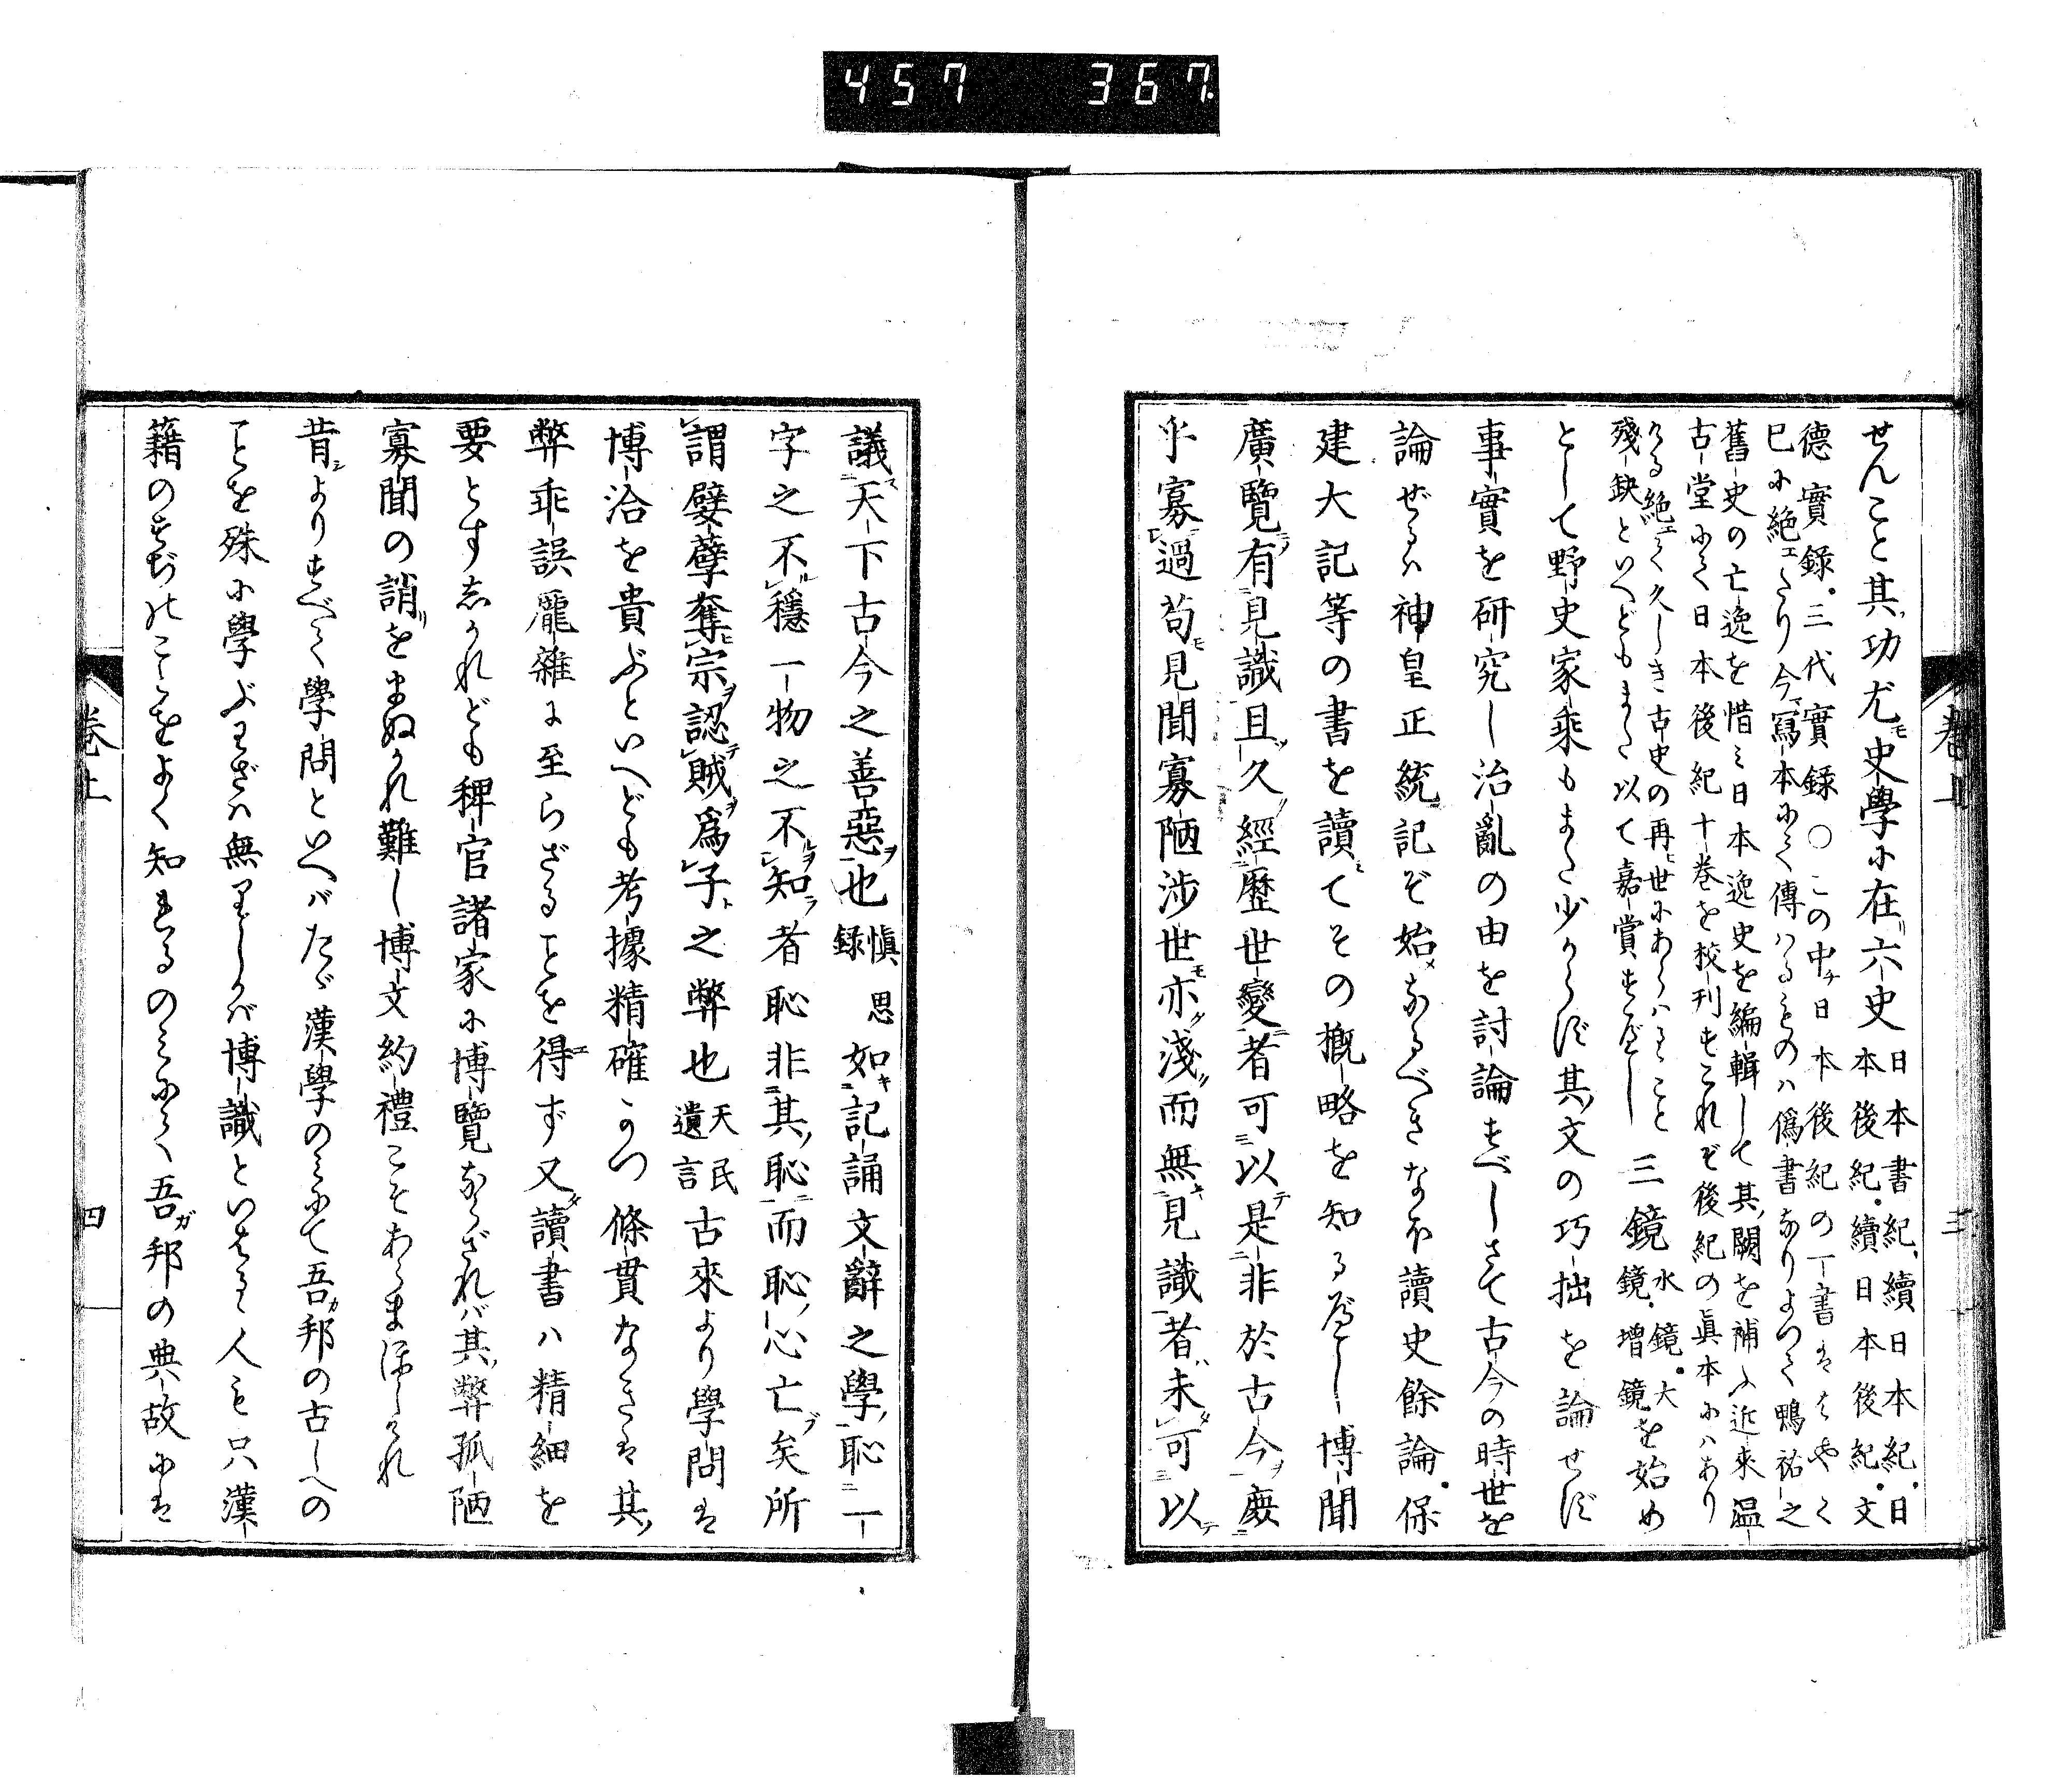 457 367.
せんこと其功尤史學に在六史日本書紀、續日本紀、日
本後紀、續日本後紀、文
德實錄。三代實錄〇この中日本後紀の一書ははやく
已に絶えたり今寫本にて傳はるものは僞書なりよつて鴨祐之
舊史の亡逸を惜み日本逸史を編輯して其闕を補ふ近來溫
古堂にて日本後紀十卷を校刊すこれぞ後紀の眞本にはあり
ける絶えて久しき古史の再世にあらはるゝこと
殘缺といへどもまた以て嘉賞すべし 三鏡水鏡。大
鏡、增鏡を始め
として野史家乘もまた少からず其文の巧拙を論せず
事實を研究し治亂の由を討論すべしさて古今の時世を
論ぜるハ神皇正統記ぞ始なるべきなほ讀史餘論。保
建大記等の書を讀てその概略を知るべし博聞
廣覽有見識且久經歷世變者可以是非於古今慶
乎寡過苟見聞寡陋涉世亦淺而無見識者未可以
卷上 三
議天下古今之善惡也愼思
錄 如記誦文辭之學恥一
字之不穩一物之不知者恥非其恥而恥心亡矣所
謂嬖孽奪宗認賊爲子之弊也天民
遺言古來より學問は
博洽を貴ぶといへども考據精確かつ條貫なきは其
弊乖誤龐雜に至らざることを得ず又讀書ハ精細を
要とすしかれども稗官諸家に博覽ならざれバ其弊孤陋
寡聞の誚をまぬかれ難し博文約禮こそあらまほしけれ
昔よりすべて學問といへバたゞ漢學のみにて吾邦の古しへの
ことを殊に學ぶわざハ無りしかバ博識といはるゝ人も只漢
籍のすぢのことをよく知れるのみにて吾邦の典故には
卷上 四